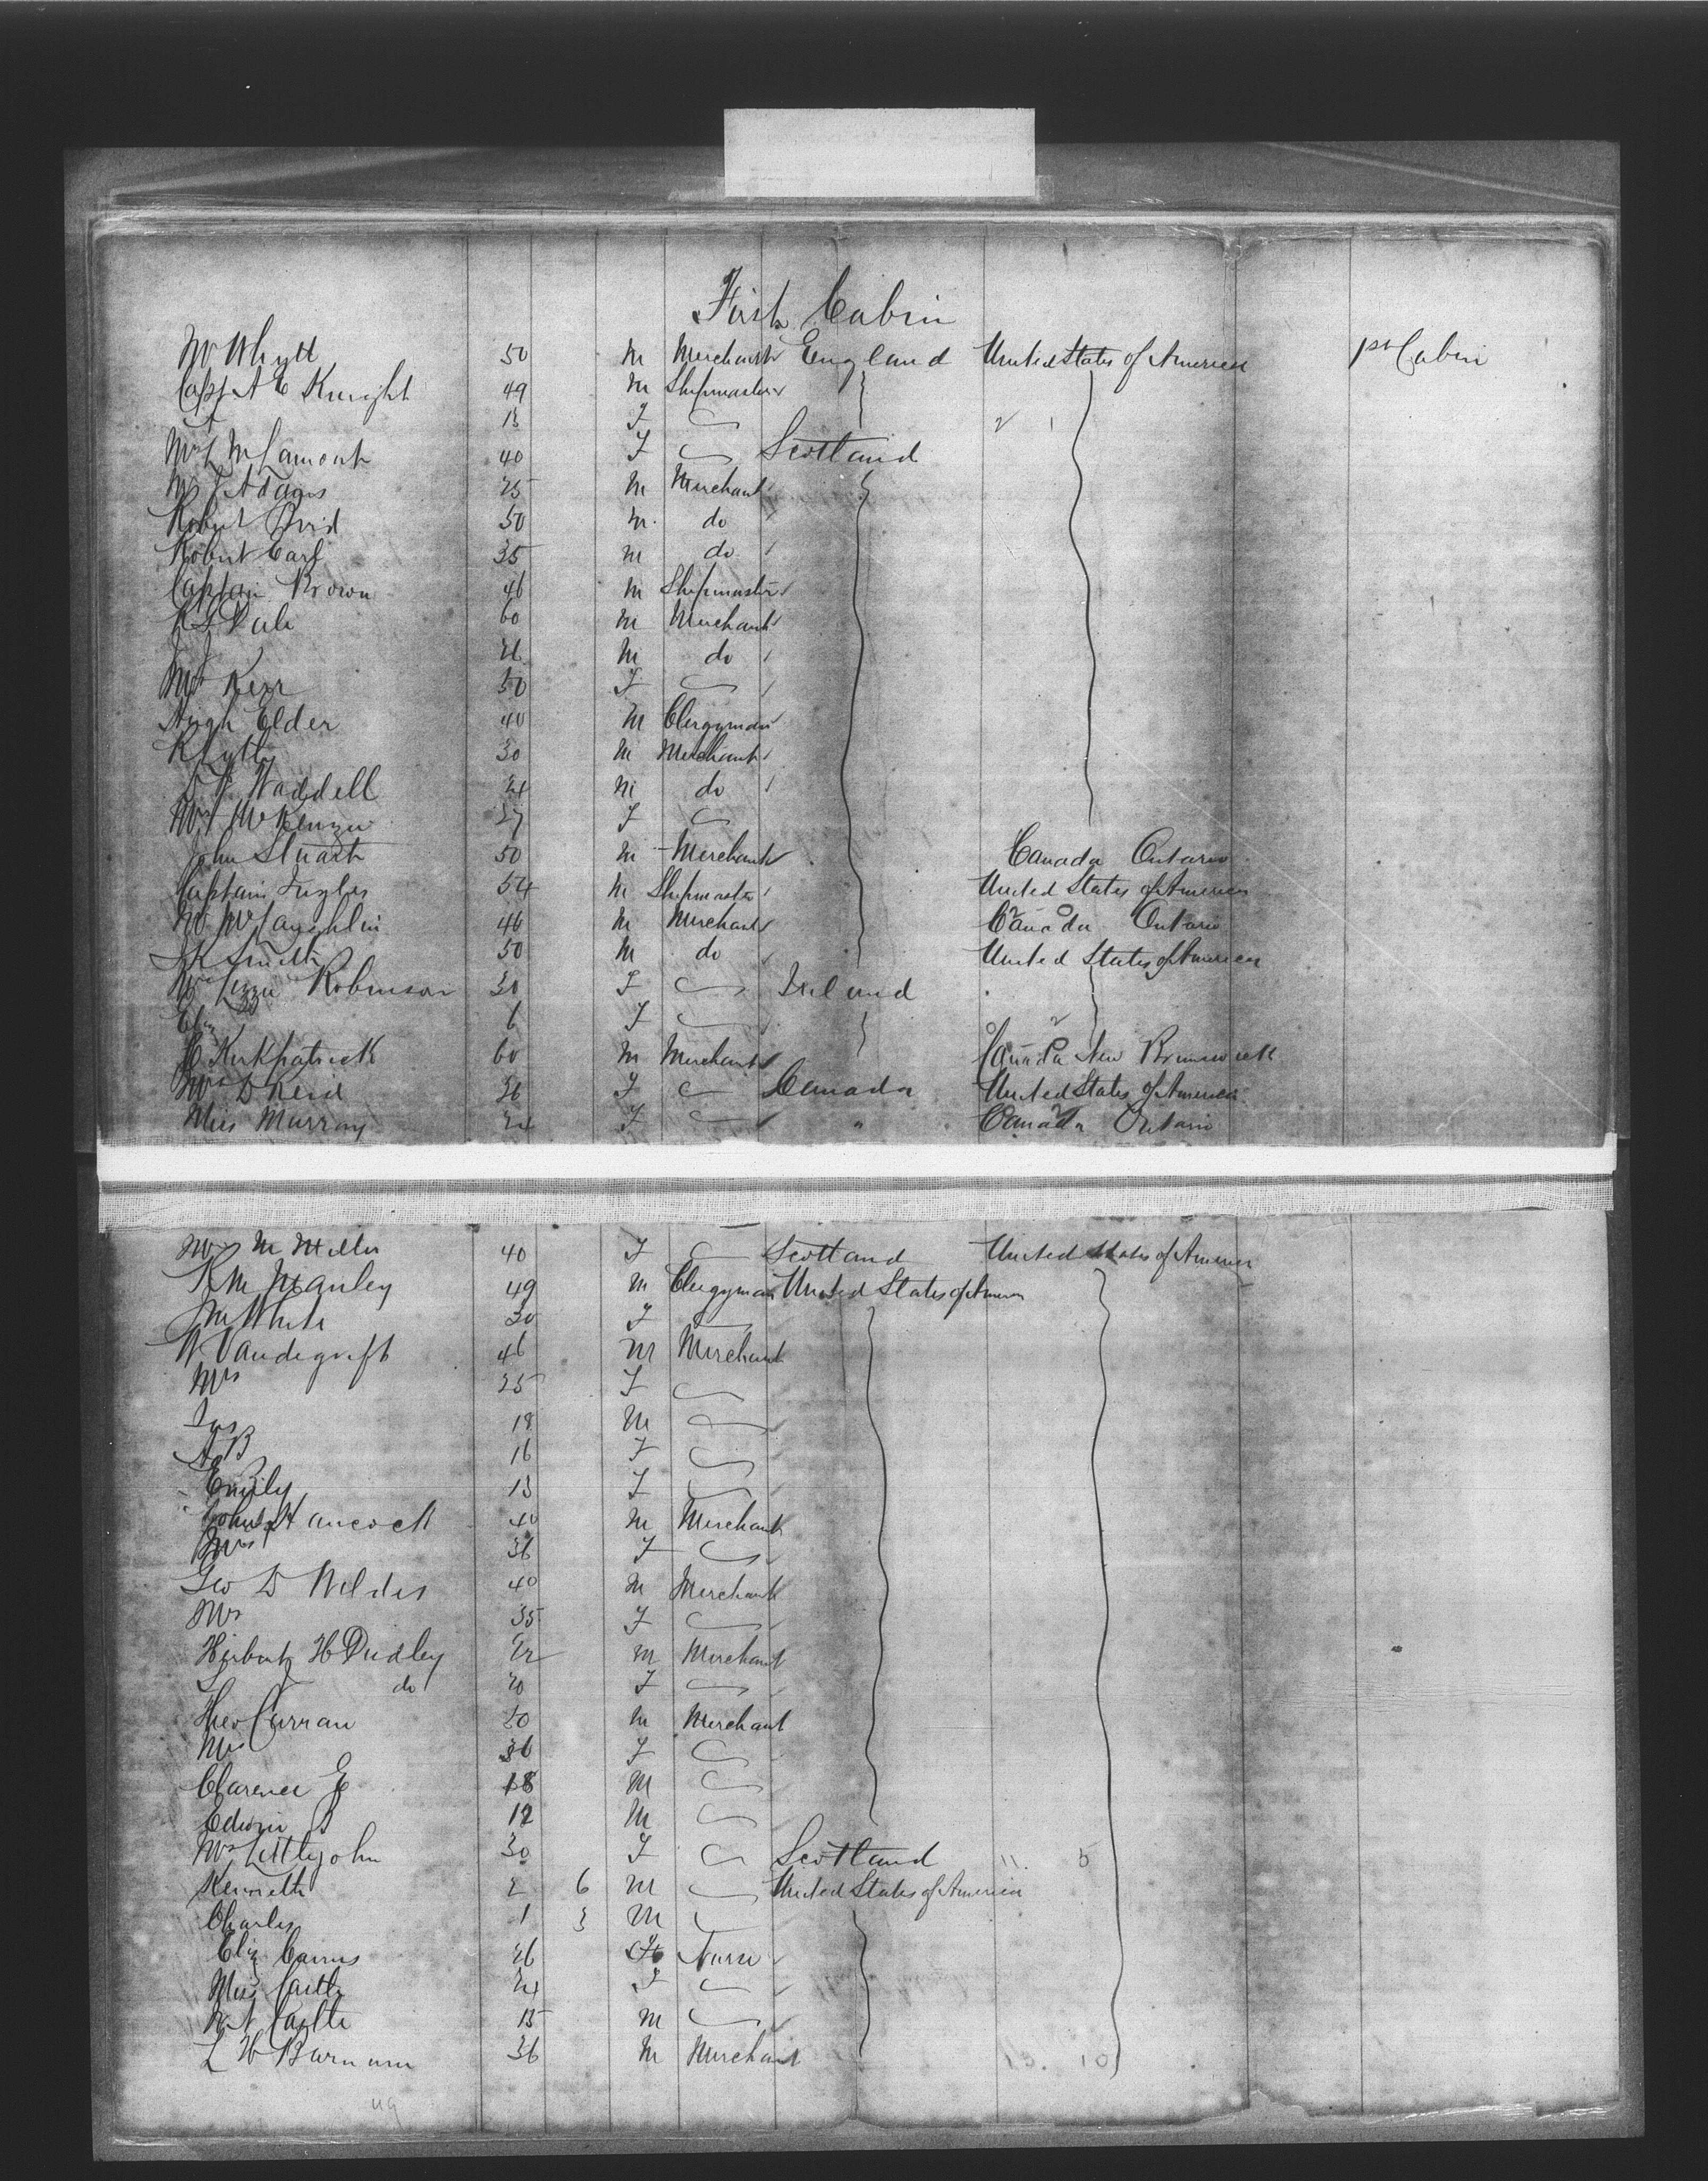 First Cabin
Mr Whytt 50 M Merchant England United States of America 1st Cabin
Capt A E Knight 49 M Shipmaster
13 F
Mrs L McLamont 40 F Scotland
J Adams 25 M Merchant
Robert 50 M do
Robert 35 M do
Captain Brown 46 M Shipmaster
60 M Merchant
M do
Mrs Kerr 50 F
Hugh Elder 40 M Clergyman
R Lyttle 30 M Merchant
Waddell 24 M do
Mrs McKenzie 27 F
John Stuart 50 M Merchant Canada Ontario
Captain Inglis 54 M Shipmaster United States of America
Mr McLaughlin 46 M Merchant Canada Ontario
Smith 50 M do United States of America
Mrs Lizzie Robinson 30 F Ireland
Eliz 6 F
Kirkpatrick 60 M Merchant Canada New Brunswick
Mrs D Reid 36 F Canada United States of America
Miss Murray 24 F " Canada Ontario
M Miller 40 F Scotland United States of America
R M Manley 49 M Clergyman United States of America
White 30 F
W Vandegrift 46 M Merchant
Mrs 25 F
Jas 18 M
A B 16 F
Emily 13 F
John Hancock 40 M Merchant
Mrs 36 F
Geo D Wildes 40 M Merchant
Mrs 35 F
Herbert H Dudley 22 M Merchant
do 20 F
Theo Curran 50 M Merchant
Mrs 36 F
Clarence E 18 M
Edwin S 12 M
Mrs Littlejohn 30 F Scotland 11. 5
Kenneth 2 6 M United States of America
Charles 1 3 M
Eliz Cairns 26 F Nurse
Miss Castle 24 F
Castle 15 M
L W Barnum 36 M Merchant 13. 10
49